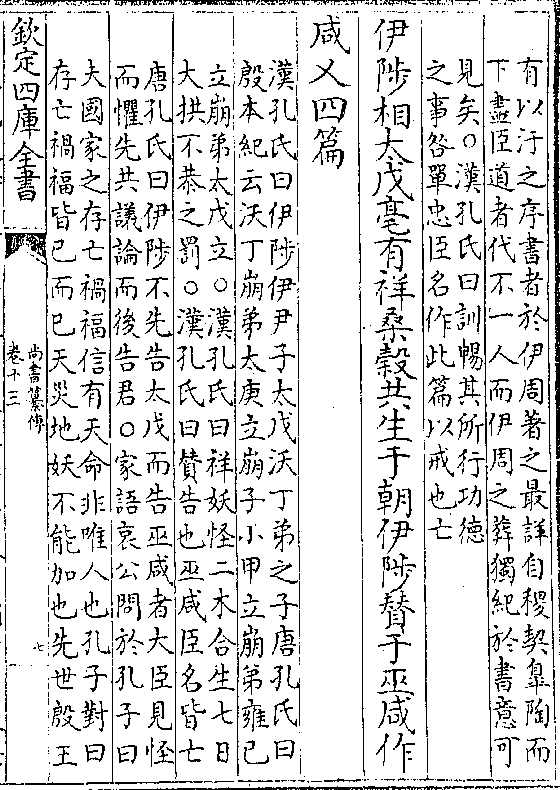 有以汙之序書者於伊周著之最詳自稷契臯陶而
下盡臣道者代不一人而伊周之葬獨紀於書意可
見矣○漢孔氏曰訓暢其所行功德
之事咎單忠臣名作此篇以戒也亡
伊陟相大戊亳有祥桑榖共生于朝伊陟賛于巫咸作
咸乂四篇
漢孔氏曰伊陟伊尹子太戊沃丁弟之子唐孔氏曰
殷本紀云沃丁崩弟太庚立崩子小甲立崩弟雍已
立崩弟太戊立○漢孔氏曰祥妖怪二木合生七日
大拱不恭之罰○漢孔氏曰賛告也巫咸臣名皆亡
唐孔氏曰伊陟不先告太戊而告巫咸者大臣見怪
而懼先共議論而後告君○家語哀公問於孔子曰
夫國家之存亡禍福信有天命非唯人也孔子對曰
存亡禍福皆已而已天災地妖不能加也先世殷王
欽定四庫全書
尚書纂傳
卷十三
七